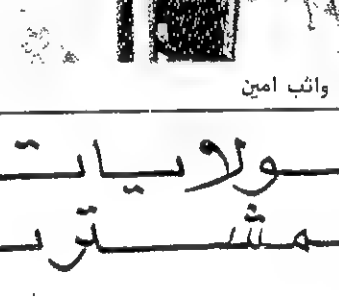 وائب امين
ـولايـات
ـمشتر